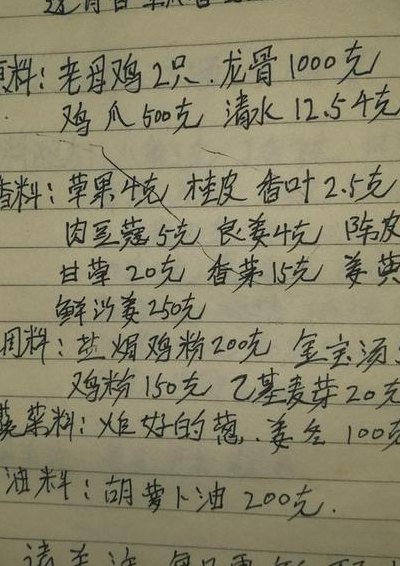 原料：老母鸡2只．龙骨1000克
鸡爪500克 清水12.54克
香料：草果4克 桂皮 香叶2.5克
肉豆蔻5克 良姜4克 陈皮
甘草20克 香茅15克 姜黄
鲜沙姜250克
调料：盐焗鸡粉200克 金宝汤
鸡粉150克 乙基麦芽20克
蔬菜料：炸好的葱、姜各100克
油料：胡萝卜油200克．